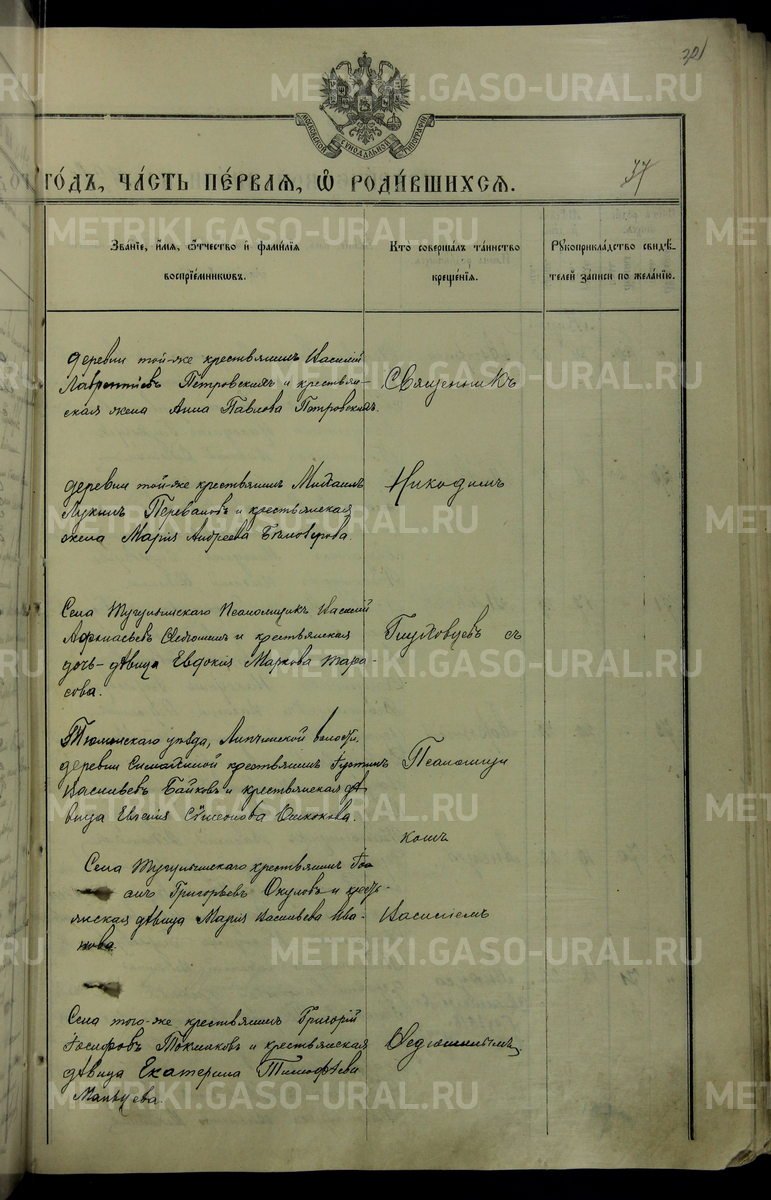 301
МОСКОВСКОЙ СѴНОДАЛЬНОЙ ТИПОГРАФІИ
ГО́ДЪ, ЧА́СТЬ ПЕ́РВАЯ, Ѡ҆ РОДИ́ВШИХСЯ.
37
Зва́нїе, и҆́мя, ѻ҆́тчество и҆ фами́лїя
воспрїе́мниковъ.
Кто̀ соверша́лъ та́инство
креще́нїя.
Рꙋкоприкла́дство свидѣ́-
телей за́писи по жела́нїю.
деревни той-же крестьянинъ Василій
Лаврентіевъ Петровскихъ и крестьян-
ская жена Анна Павлова Петровскихъ.
Священникъ
деревни той-же крестьянинъ Михаилъ
Лукинъ Переваловъ и крестьянская
жена Марія Андреева Бѣловерова.
Никодимъ
Села Тугулымскаго Псаломщикъ Василій
Афанасьевъ и крестьянская
дочь-дѣвица Евдокія Маркова Тара-
сова.
Глуховцевъ съ
Тюменскаго уѣзда, волости,
деревни крестьянинъ Густинъ
Васильевъ Байковъ и крестьянская дѣ
вица Евгенія Сѵмеонова
Псаломщи
комъ
Села Тугулымскаго крестьянинъ
Григорьевъ Окуловъ и кресть-
янская дѣвица Марія Васильева Ива-
нова
Василіемъ
Села того-же крестьянинъ Григорій
Іосифовъ Токмаковъ и крестьянская
дѣвица Екатерина Тимофѣева
Мальцева.
Федюшинымъ
METRIKI.GASO-URAL.RU